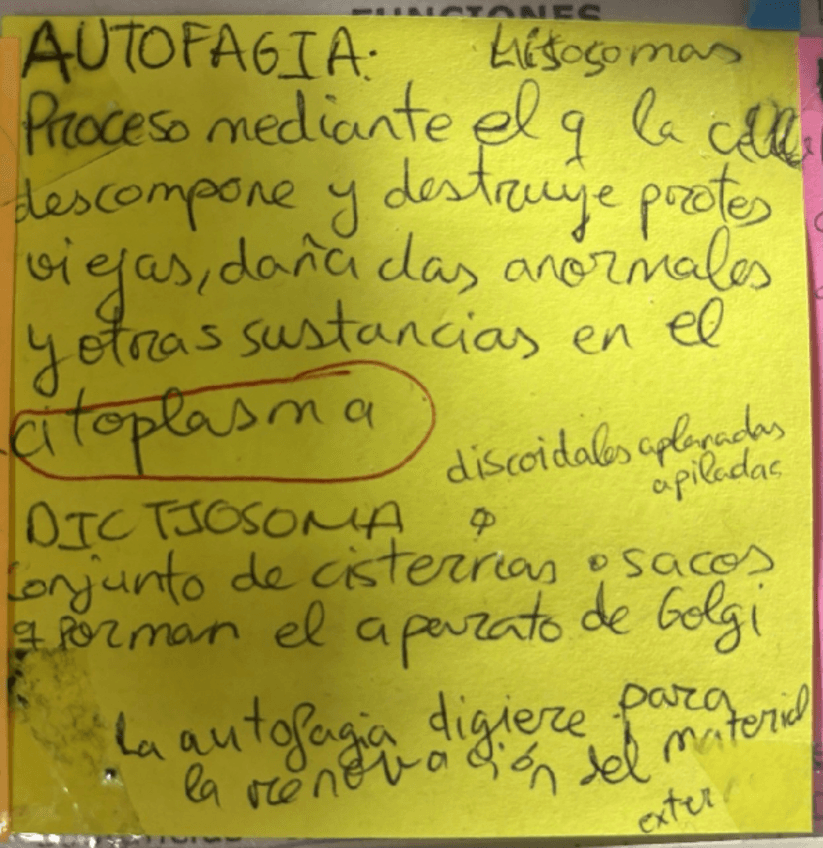 FUNCIONES
AUTOFAGIA: Lisosomas
Proceso mediante el q la
descompone y destruye protes
viejas, dañadas anormales
y otras sustancias en el
citoplasma
discoidales aplanadas
apiladas
DICTIOSOMA
Conjunto de cisternas o sacos
q forman el aparato de Golgi
La autofagia digiere para
la renovación del material
exter